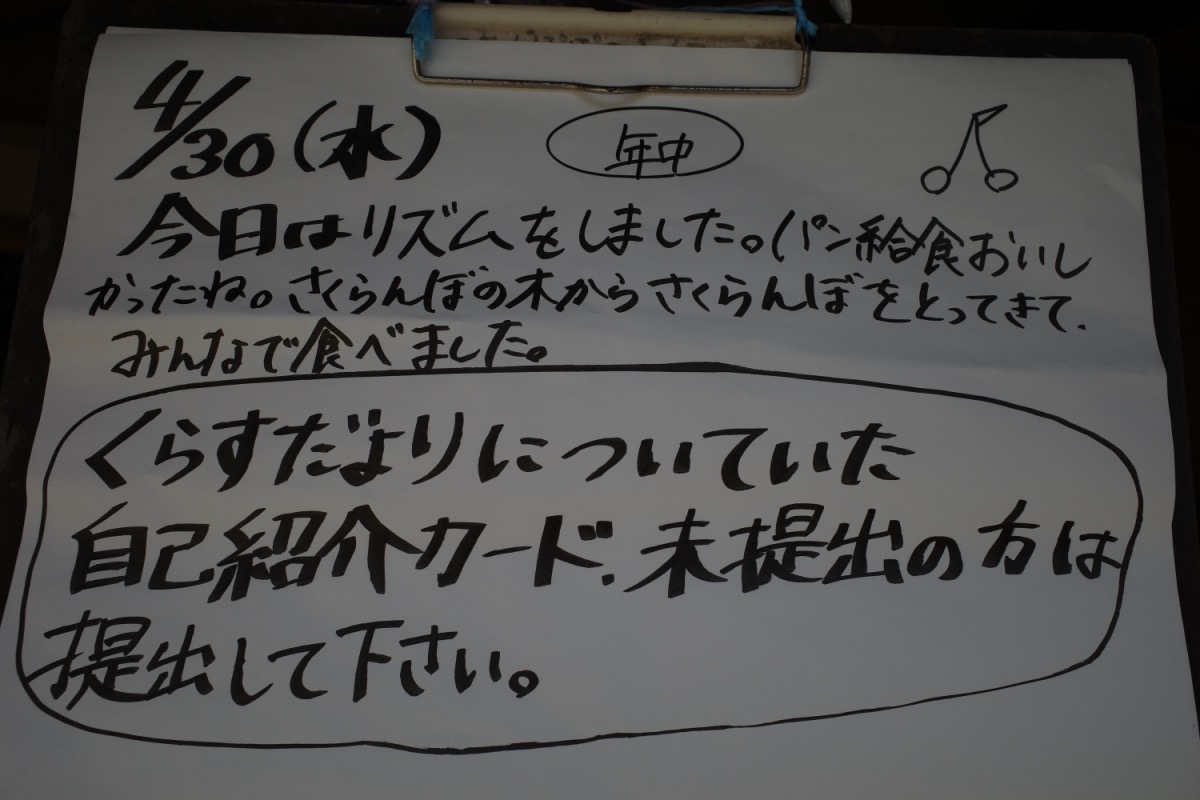 4/30(水)
年中
今日はリズムをしました。パン給食おいし
かったね。さくらんぼの木からさくらんぼをとってきて、
みんなで食べました。
くらすだよりについていた
自己紹介カード、未提出の方は
提出して下さい。